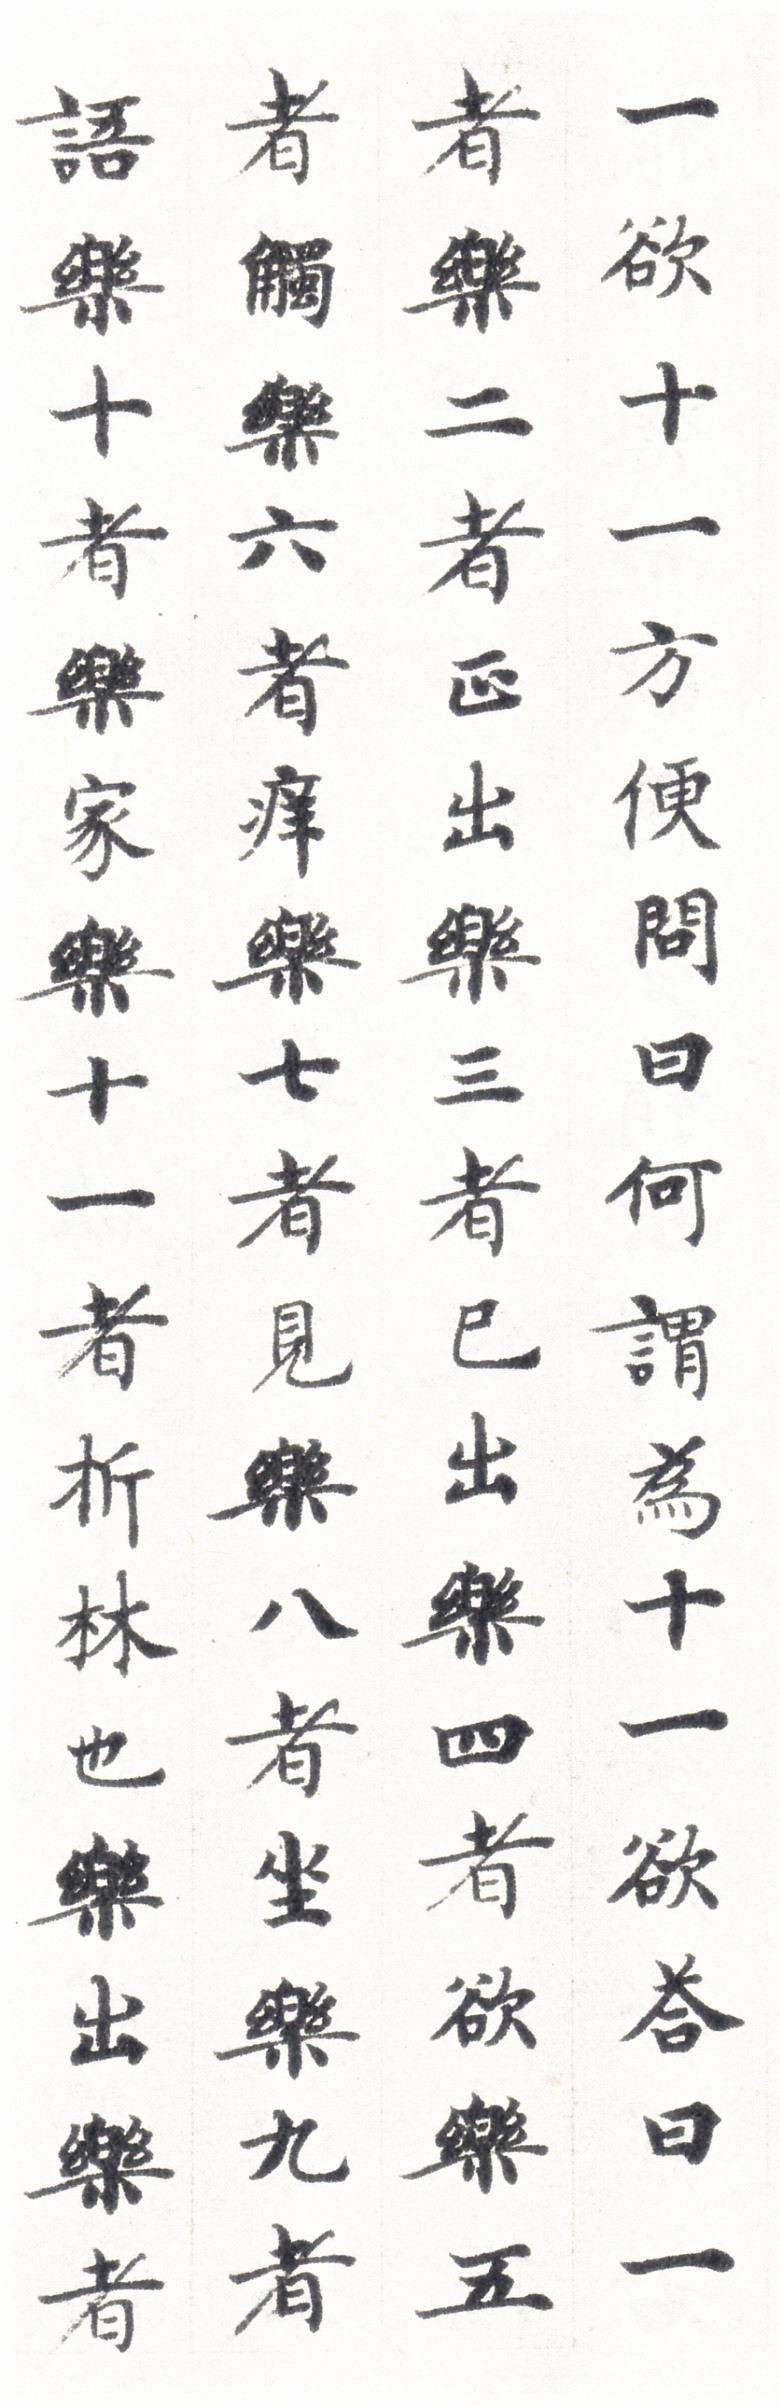 一欲十一方便問曰何謂為十一欲荅曰一
者樂二者正出樂三者已出樂四者欲樂五
者觸樂六者痒樂七者見樂八者坐樂九者
語樂十者樂家樂十一者折林也樂出樂者